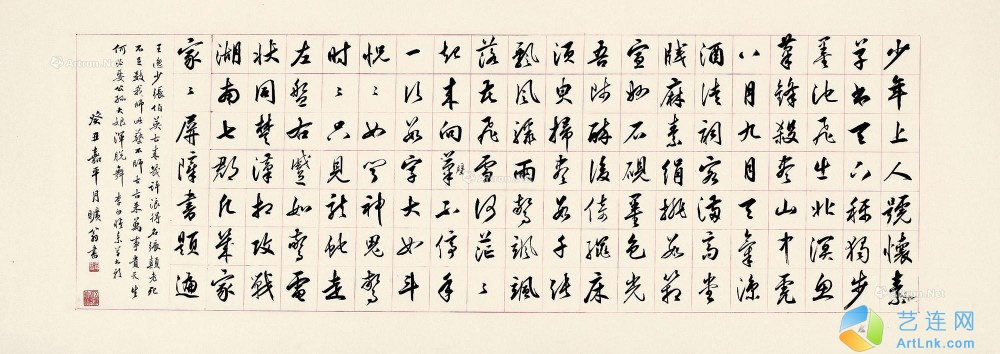 少年上人號懷素
草书天下稱獨步
墨池飛出北溟魚
筆鋒殺盡山中兔
八月九月天氣涼
酒徒詞客滿高堂
牋麻素絹排数箱
宣州石硯墨色光
吾師醉後倚繩床
須臾掃盡数千張
飄風驟雨驚颯颯
落花飛雪何茫々
起來向筆不停手
壁
一行数字大如斗
怳々如聞神鬼驚
时々只見龍蛇走
左盤右蹙如驚電
狀同楚漢相攻戰
湖南七郡凡幾家
家々屏障書題遍
王逸少張伯英古來幾許浪得名張顛老死
不足數我師此藝不師古古來萬事貴天生
何必要公孫大娘渾脫舞 李白懷素草書歌
癸丑嘉平月曠翁書
艺连网
ArtLnk.com